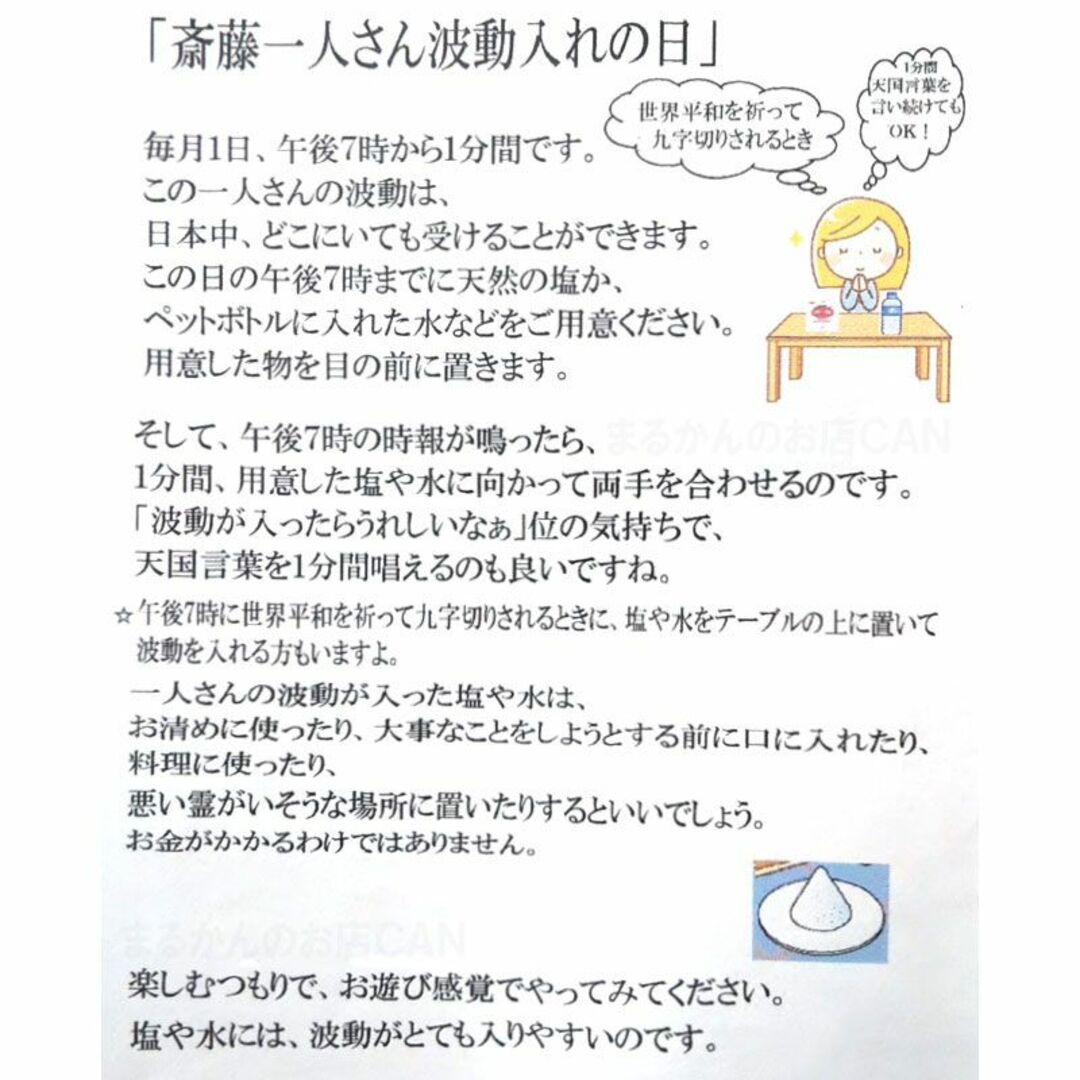 「斎藤一人さん波動入れの日」
1分間
天国言葉を
言い続けても
OK！
世界平和を祈って
九字切りされるとき
毎月1日、午後7時から1分間です。
この一人さんの波動は、
日本中、どこにいても受けることができます。
この日の午後7時までに天然の塩か、
ペットボトルに入れた水などをご用意ください。
用意した物を目の前に置きます。
まるかんのお店CAN
そして、午後7時の時報が鳴ったら、
1分間、用意した塩や水に向かって両手を合わせるのです。
「波動が入ったらうれしいなぁ」位の気持ちで、
天国言葉を1分間唱えるのも良いですね。
☆午後7時に世界平和を祈って九字切りされるときに、塩や水をテーブルの上に置いて
波動を入れる方もいますよ。
一人さんの波動が入った塩や水は、
お清めに使ったり、大事なことをしようとする前に口に入れたり、
料理に使ったり、
悪い霊がいそうな場所に置いたりするといいでしょう。
お金がかかるわけではありません。
まるかんのお店CAN
楽しむつもりで、お遊び感覚でやってみてください。
塩や水には、波動がとても入りやすいのです。